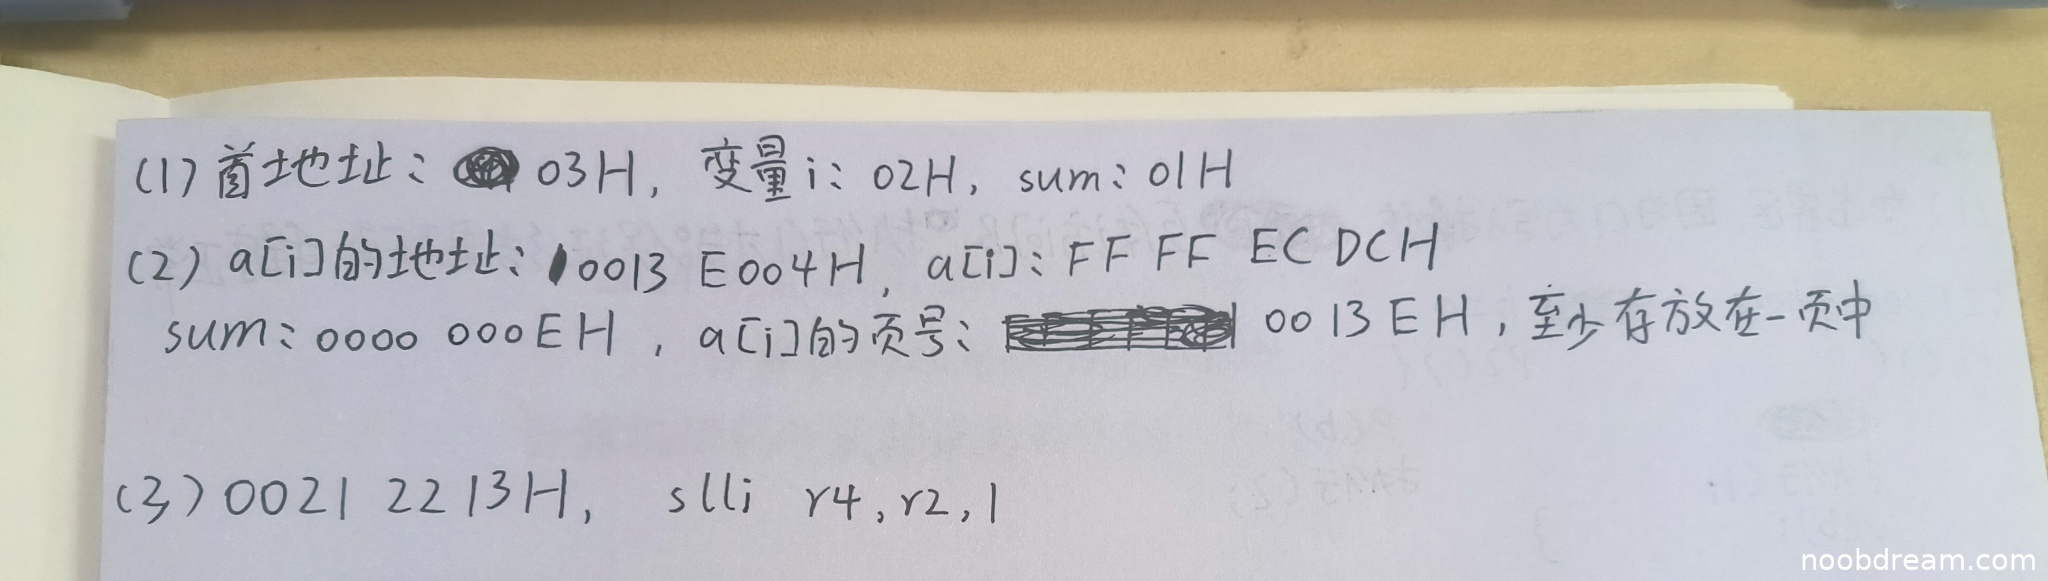 (1) 首地址: 03H, 变量i: 02H, sum: 01H
(2) a[i]的地址: 0013 E004H, a[i]: FF FF EC DCH
sum: 0000 000EH, a[i]的页号: 0013EH, 至少存放在一页中
(3) 0021 2213H, slli r4, r2, 1
noobdream.com